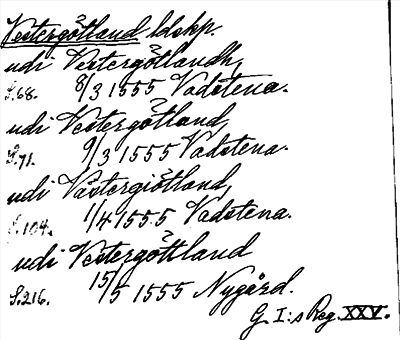 Vestergötland ldskp.
udi Vestergötlandh,
S.68. 8/3 1555 Vadstena.
udi Vestergötland,
S.71. 9/3 1555 Vadstena.
udi Västergiötland,
S.104. 1/4 1555 Vadstena.
udi Vestergöttland
S.216. 15/5 1555 Nygård.
G. I:s Reg. XXV.